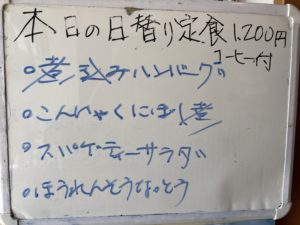 本日の日替り定食 1.200円
コーヒー付
。煮込みハンバーグ
。こんにゃくにぼし煮
。スパゲティーサラダ
。ほうれんそうなっとう